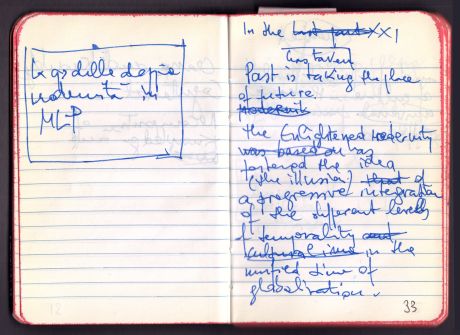 la qs della doppia
modernità in
MLP
In the last part XXI
has taken
Past is taking the place
of future.
Modernit
The Enlightened Modernity
was based on has
fostered the idea
(the illusion) that of
a progressive integration
of the different levels
of temporality and
cultural time in the
unified time of
globalization.
12
33